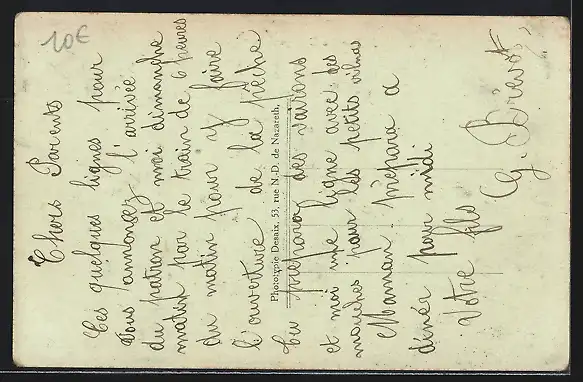 10€
Chers Parents
Ces quelques lignes pour
vous annoncez l'arrivée
du patron et moi dimanche
matin par le train de 6 heures
du matin pour y faire
l'ouverture de la pêche
Phototypie Desaix, 53, rue N.-D. de Nazareth.
tu prépare des vairons
et moi une ligne avec des
mouches pour les petits
Maman prépara a
diner pour midi
Votre fils
G. Brevot